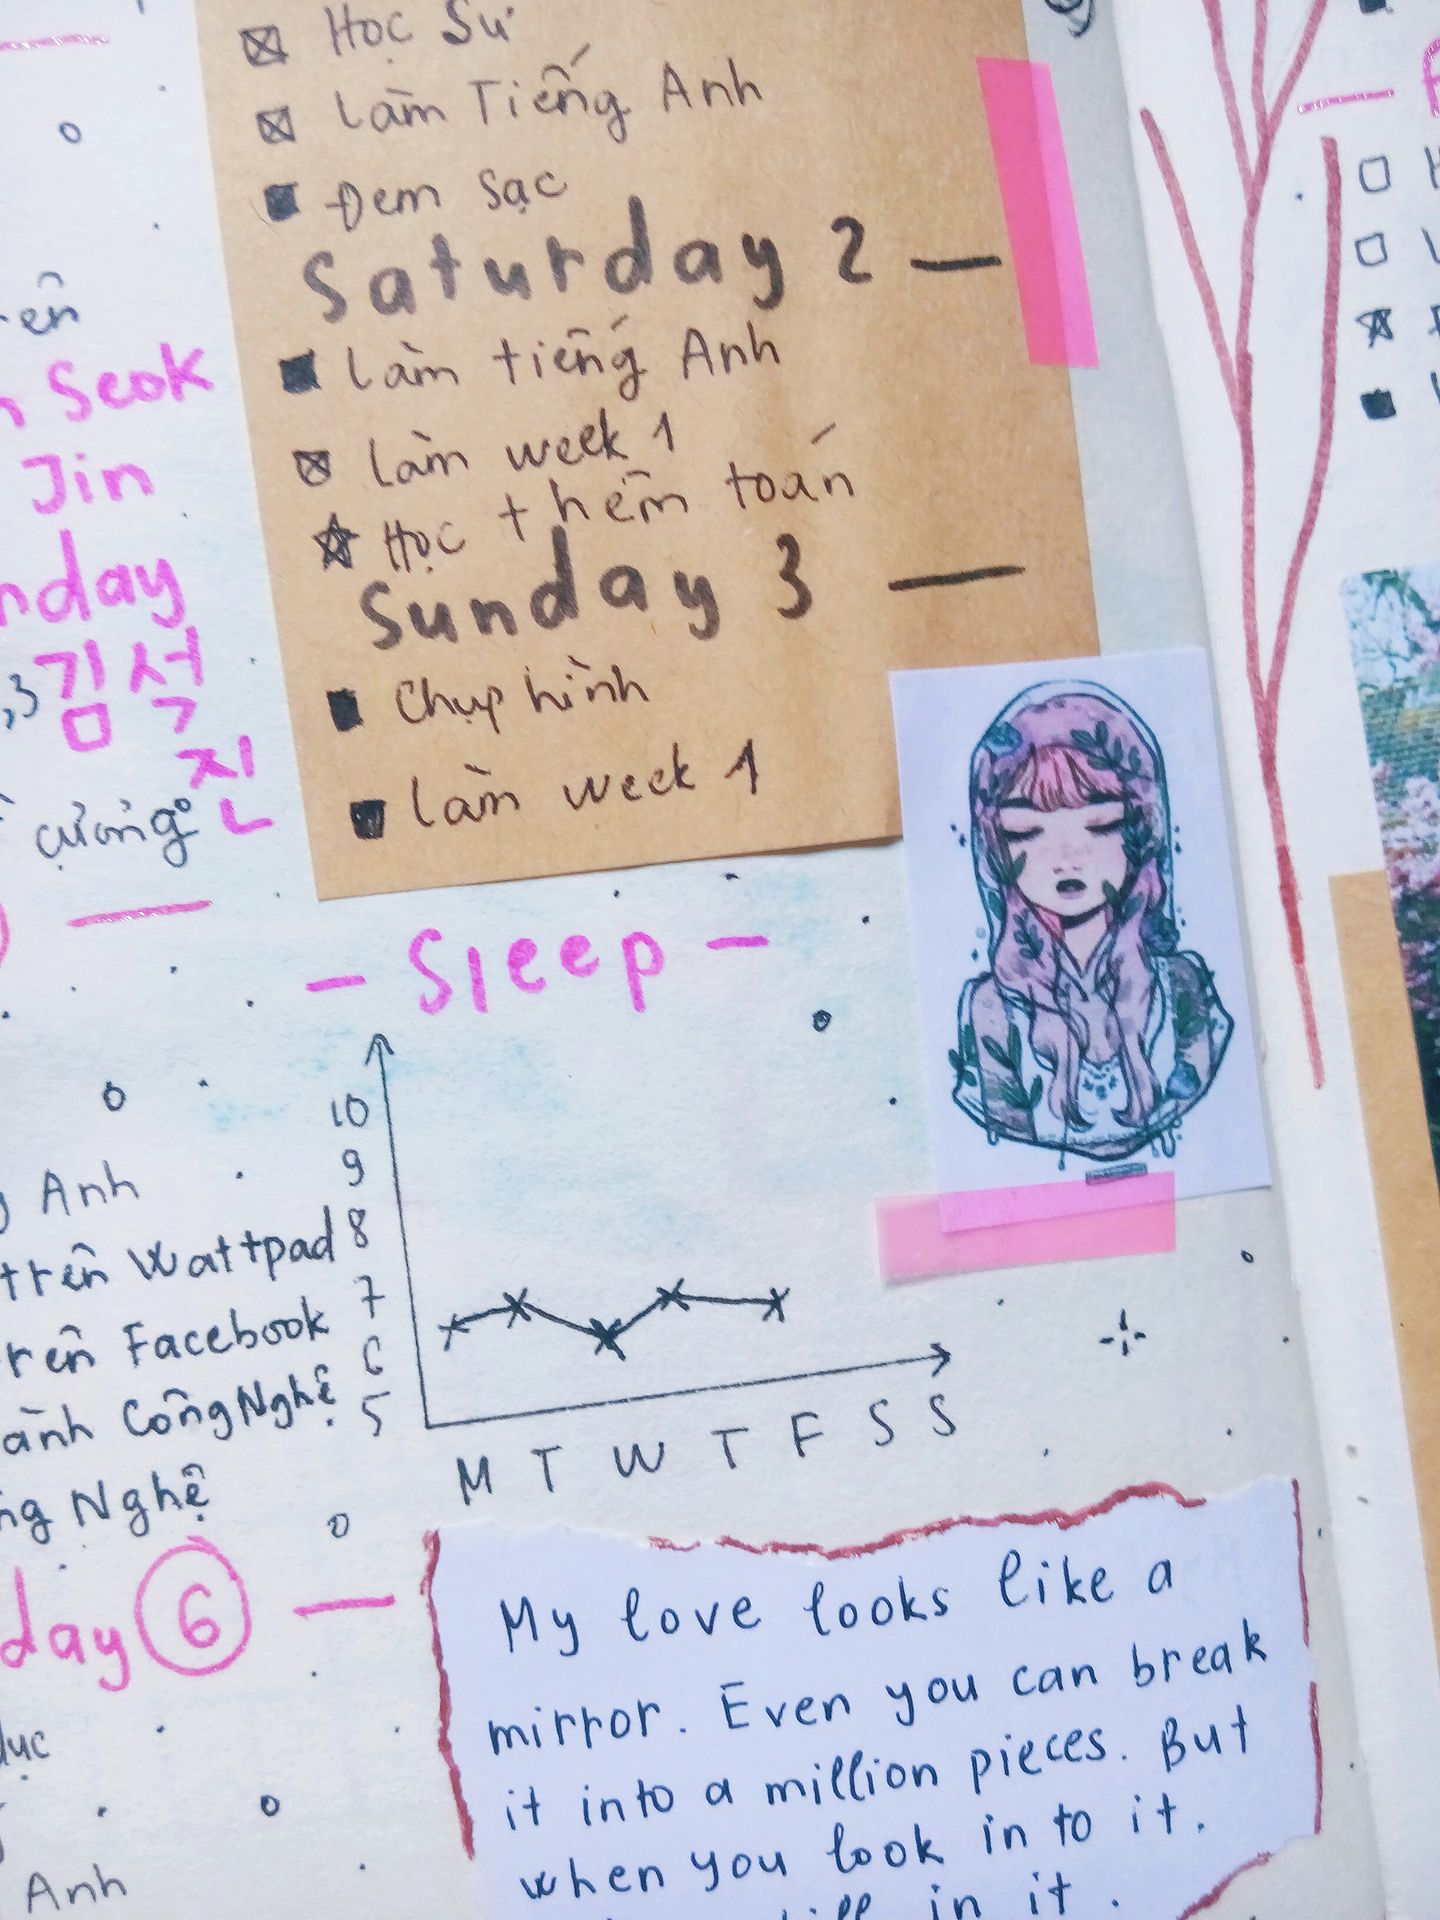 Học Sử
Làm Tiếng Anh
Đem sạc
Saturday 2 —
Làm tiếng Anh
Làm week 1
Học thêm toán
Sunday 3 —
Chụp hình
Làm week 1
ên
Seok
Jin
nday
,3 김석진
cương
- Sleep -
10
9
8
7
6
5
M T W T F S S
Anh
trên Wattpad
rên Facebook
ành Công Nghệ
ng Nghệ
day 6 —
dục
Anh
My love looks like a
mirror. Even you can break
it into a million pieces. But
when you look in to it.
in it.